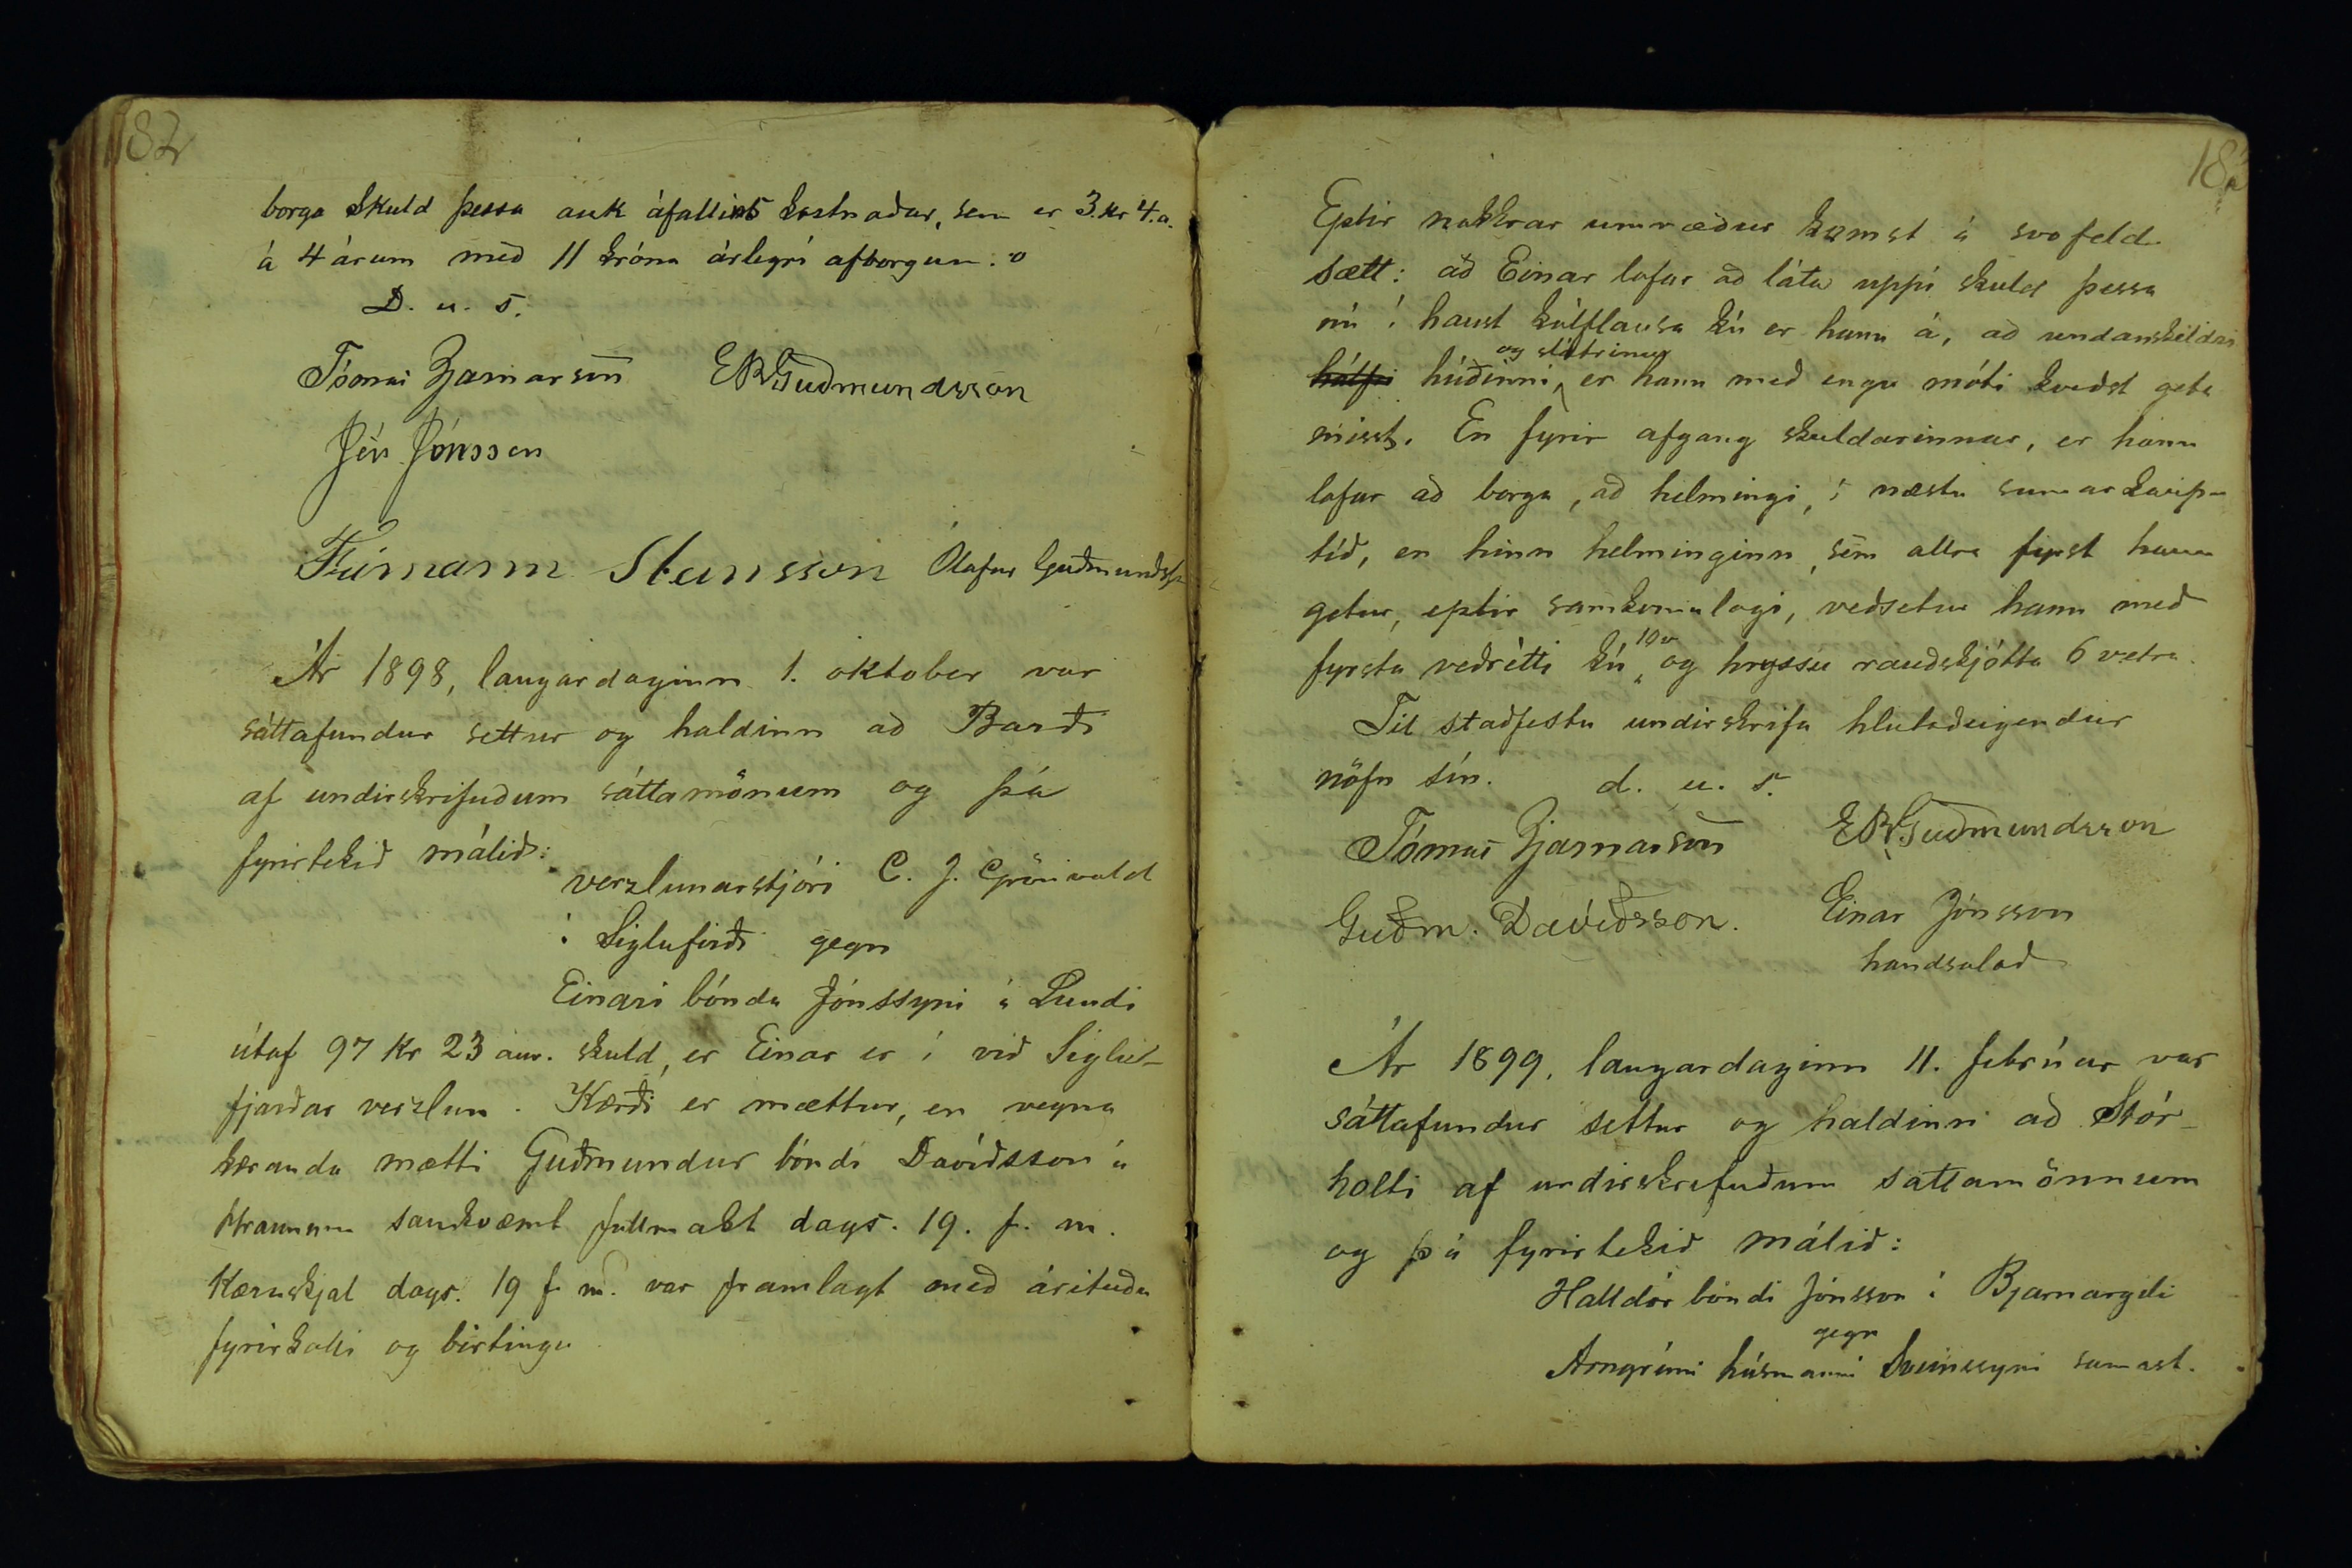 182
borga skuld þessa auk áfallins kostnaðar, sem er 3.kr 4.a.
á 4 árum með 11 króna árlegri afborgun.
D. u. s.
Tómas Bjarnarson EBGuðmundsson
Jón Jónsson
Frímann Steinsson Ólafur Guðmundss
Ár 1898, laugardaginn 1. oktober var
sáttafundur settur og haldinn að Barði
af undirskrifuðum sáttamönnum og þá
fyrirtekið málið:
verzlunarstjóri C. J. Grönvold
í Siglufirði gegn
Einari bónda Jónssyni á Lundi
útaf 97 kr 23 aur. skuld, er Einar er í við Siglu-
fjarðar verzlun. Kærði er mættur, en vegna
kæranda mætti Guðmundur bóndi Davíðsson á
Hraunum samkvæmt fullmakt dags. 19. f. m.
Kæruskjal dags. 19 f. m. var framlagt með árituðu
fyrirkalli og birtingu
Eptir nokkrar umræður komst á svofeld
sætt: að Einar lofar að láta uppí skuld þessa
nú í haust kálflausa kú er hann á, að undanskildri
hálfri húðinni og slátrinu, er hann með engu móti kveðst geta
misst. En fyrir afgang skuldarinnar, er hann
lofar að borga, að helmingi, í næstu sumarkaup-
tíð, en hinn helminginn, sem allra fyrst hann
getur, eptir samkomulagi, veðsetur hann með
fyrsta veðrétti kú 10 v og hryssu rauðskjótta 6 vetra.
Til staðfestu undirskrifa hlutaðeigendur
nöfn sín. d. u. s.
Tómas Bjarnarson EBGuðmundsson
Guðm. Davíðsson. Einar Jónsson
handsalað
Ár 1899, laugardaginn 11. febrúar var
sáttafundur settur og haldinn að Stór-
holti af undirskrifuðum sáttamönnum
og þá fyrirtekið málið:
Halldór bóndi Jónsson í Bjarnargili
gegn
Arngrími húsmanni Sveinssyni samast.